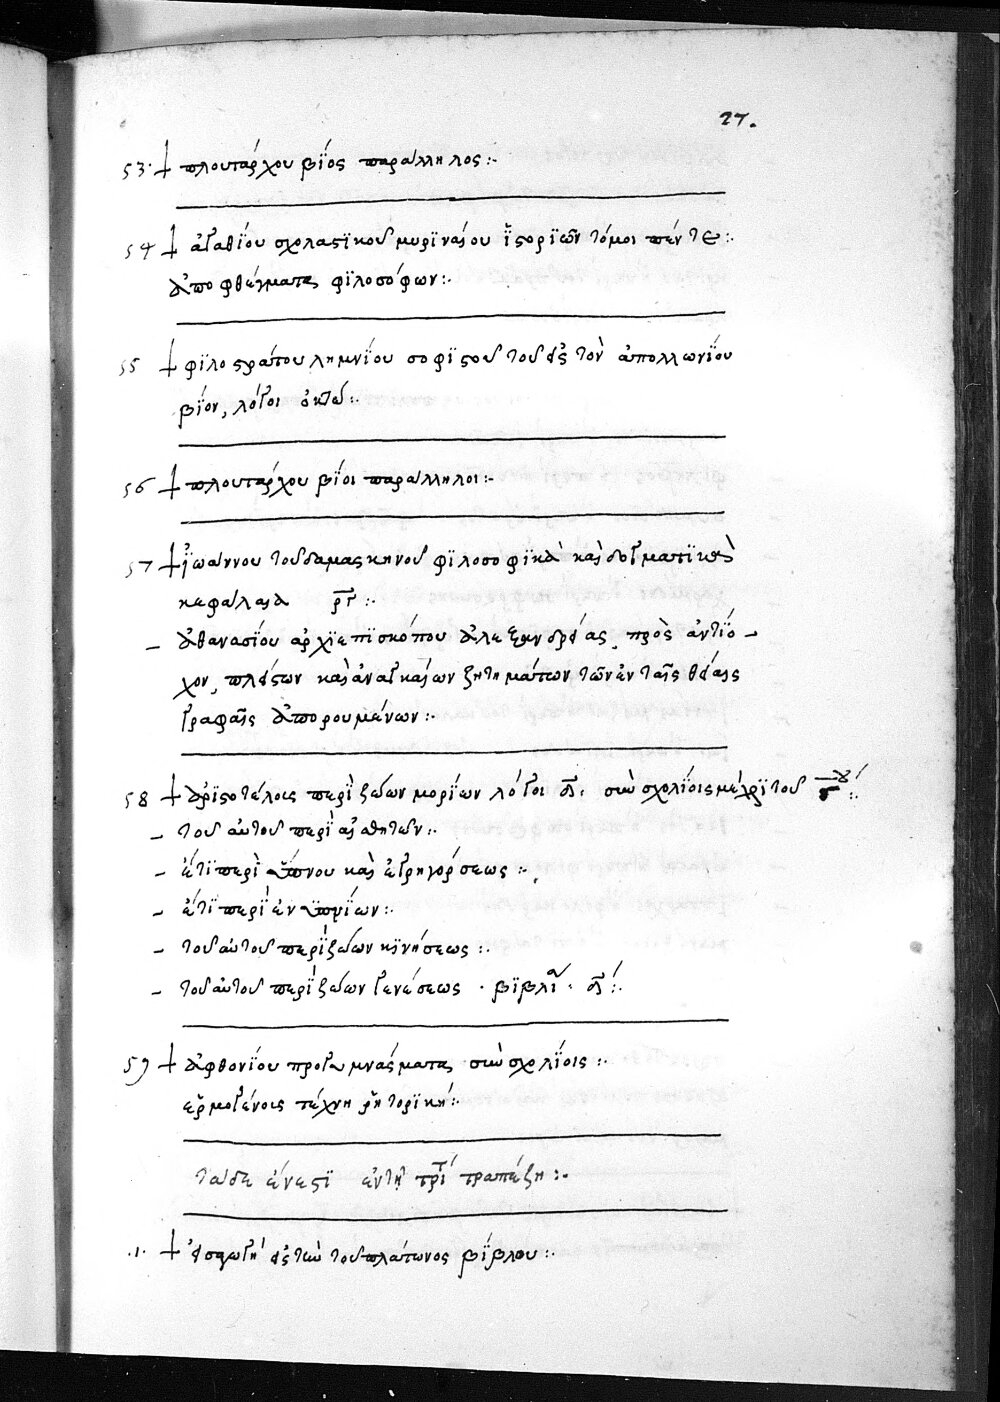 27.
53· † πλουτάρχου βΐος παράλληλος :·
54 † ἀγαθίου σχολαστϊκοῦ μυρϊναίου ἱστορϊῶν τόμοι πέντε :·
ἀποφθέγματα φϊλοσόφων :·
55 † φϊλοστράτου λημνΐου σοφϊστοῦ τοῦ εἰς τὸν ἀπολλωνΐου
βΐον, λόγοι ὀκτώ :·
56 † πλουτάρχου βΐοι παράλληλοι :·
57 † ἰωάννου τοῦ δαμασκηνοῦ φϊλοσοφϊκὰ καὶ δογματϊκὰ
κεφάλαια ργ :·
– ἀθανασίου ἀρχϊεπϊσκόπου ἀλεξανδρείας, πρὸς ἀντΐο-
χον, πλείστων καὶ ἀναγκαίων ζητημάτων τῶν ἐν ταῖς θείαις
γραφαῖς ἀπορουμένων :·
58 † ἀρϊστοτέλους περὶ ζώων μορίων λόγοι δ̅. σὺν σχολΐοις μέχρϊ τοῦ
– τοῦ αὐτοῦ περὶ αἰσθητῶν :·
– ἔτϊ περὶ ὕπνου καὶ ἐγρηγόρσεως :·
– ἔτϊ περὶ ἐνυπνΐων :·
– τοῦ αὐτοῦ περὶ ζώων κϊνήσεως :·
– τοῦ αὐτοῦ περὶ ζώων γενέσεως · βϊβλΐ · δ̅ :·
59 † ἀφθονΐου προγυμνάσματα σὺν σχολΐοις :·
ἑρμογένους τέχνη ῥητορϊκή :·
τάδε ἔνεστϊ ἐν τῇ τρίτ τραπέζη :·
·1· † εἰσαγωγὴ εἰς τὴν τοῦ πλάτωνος βΐβλου :·